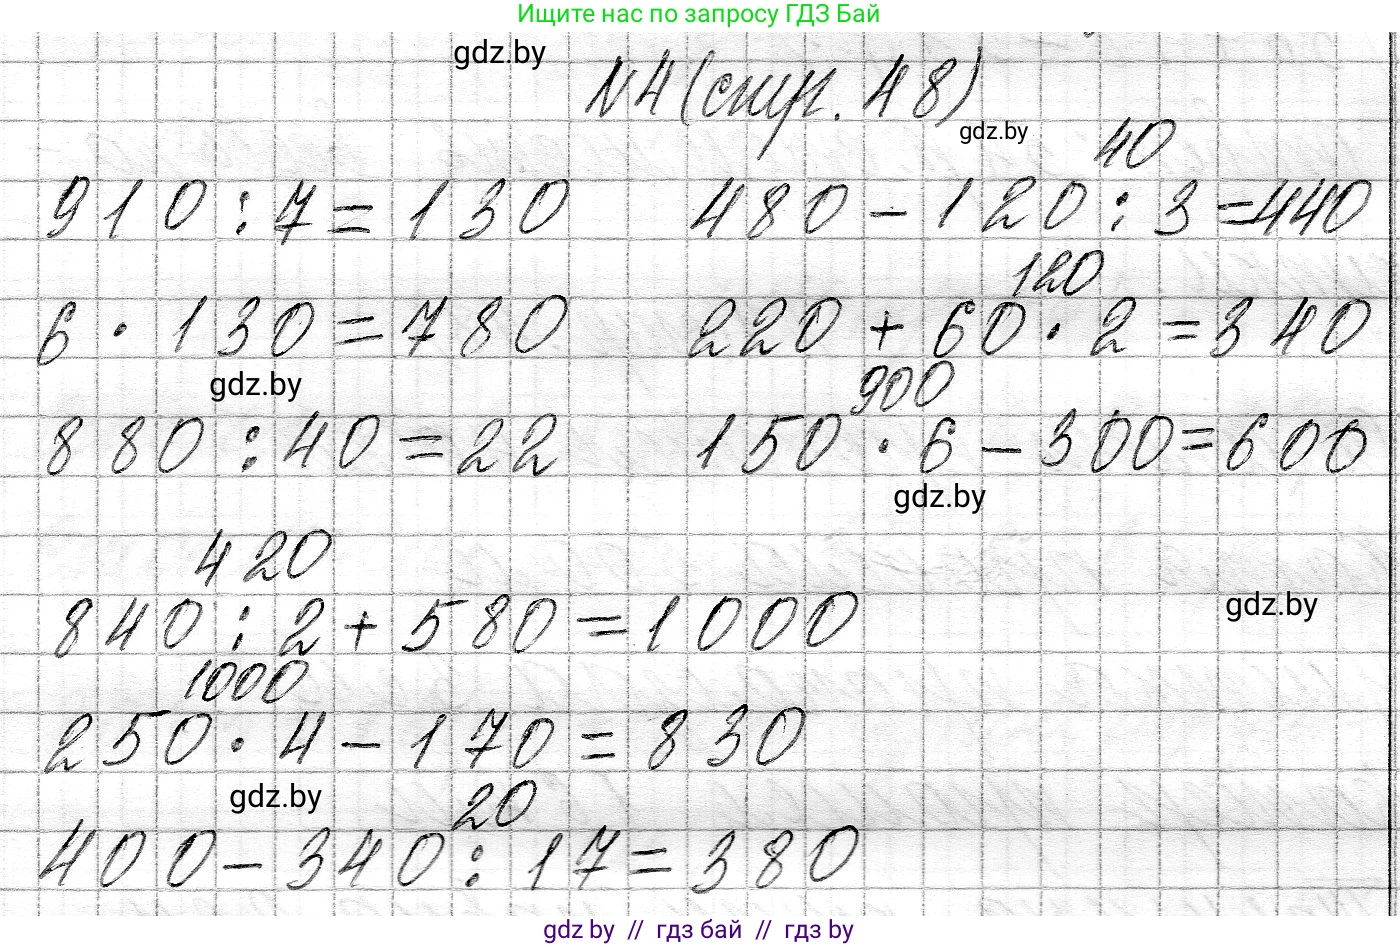 Ищите нас по запросу ГДЗ Бай
gdz.by
N4 (стр. 48)
gdz.by
40
910 : 7 = 130 480 - 120 : 3 = 440
120
6 · 130 = 780 220 + 60 · 2 = 340
gdz.by
900
880 : 40 = 22 150 · 6 - 300 = 600
gdz.by
420
gdz.by
840 : 2 + 580 = 1000
1000
250 · 4 - 170 = 830
gdz.by
20
400 - 340 : 17 = 380
gdz.by // гдз бай // гдз by